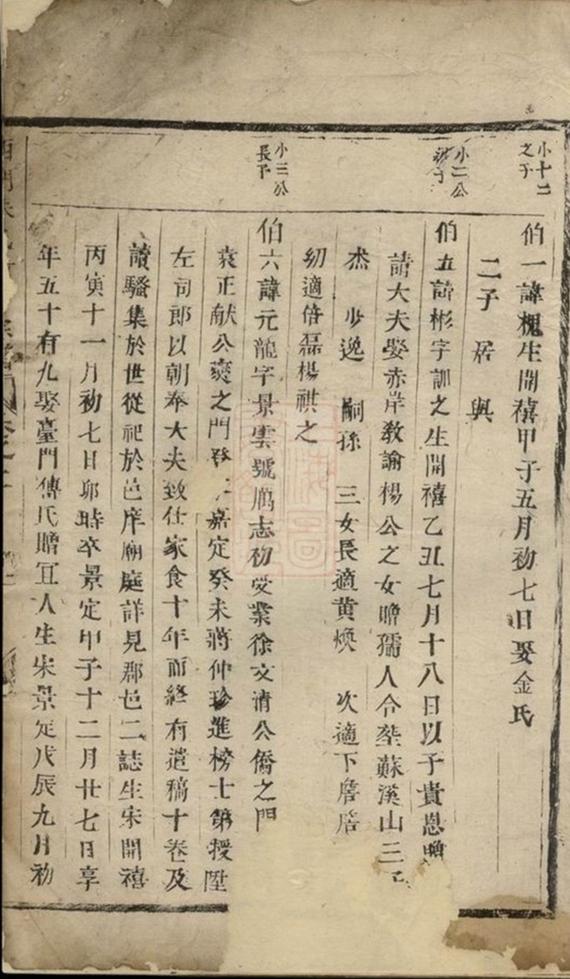 小十二之子
伯一諱槐生開禧甲子五月初七日娶金氏
二子 居 與
小二公
伯五諱彬字訓之生開禧乙丑七月十八日以子貴恩贈
請大夫娶赤岸教諭楊公之女贈孺人合塟蘇溪山三子
杰 少逸 嗣孫 三女長適黄煥 次適下詹詹
幼適倍磊楊祺之
小三公長子
伯六諱元龍字景雲號厲志初受業徐文清公僑之門
袁正献公燮之門 嘉定癸未蔣仲珍進榜士第授陞
左司郎以朝奉大夫致仕家食十年而終有遺稿十卷及
讀騷集於世從祀於邑庠廟庭詳見郡邑二誌生宋開禧
丙寅十一月初七日卯時卒景定甲子十二月廿七日享
年五十有九娶臺門傅氏贈宜人生宋景定戊辰九月初